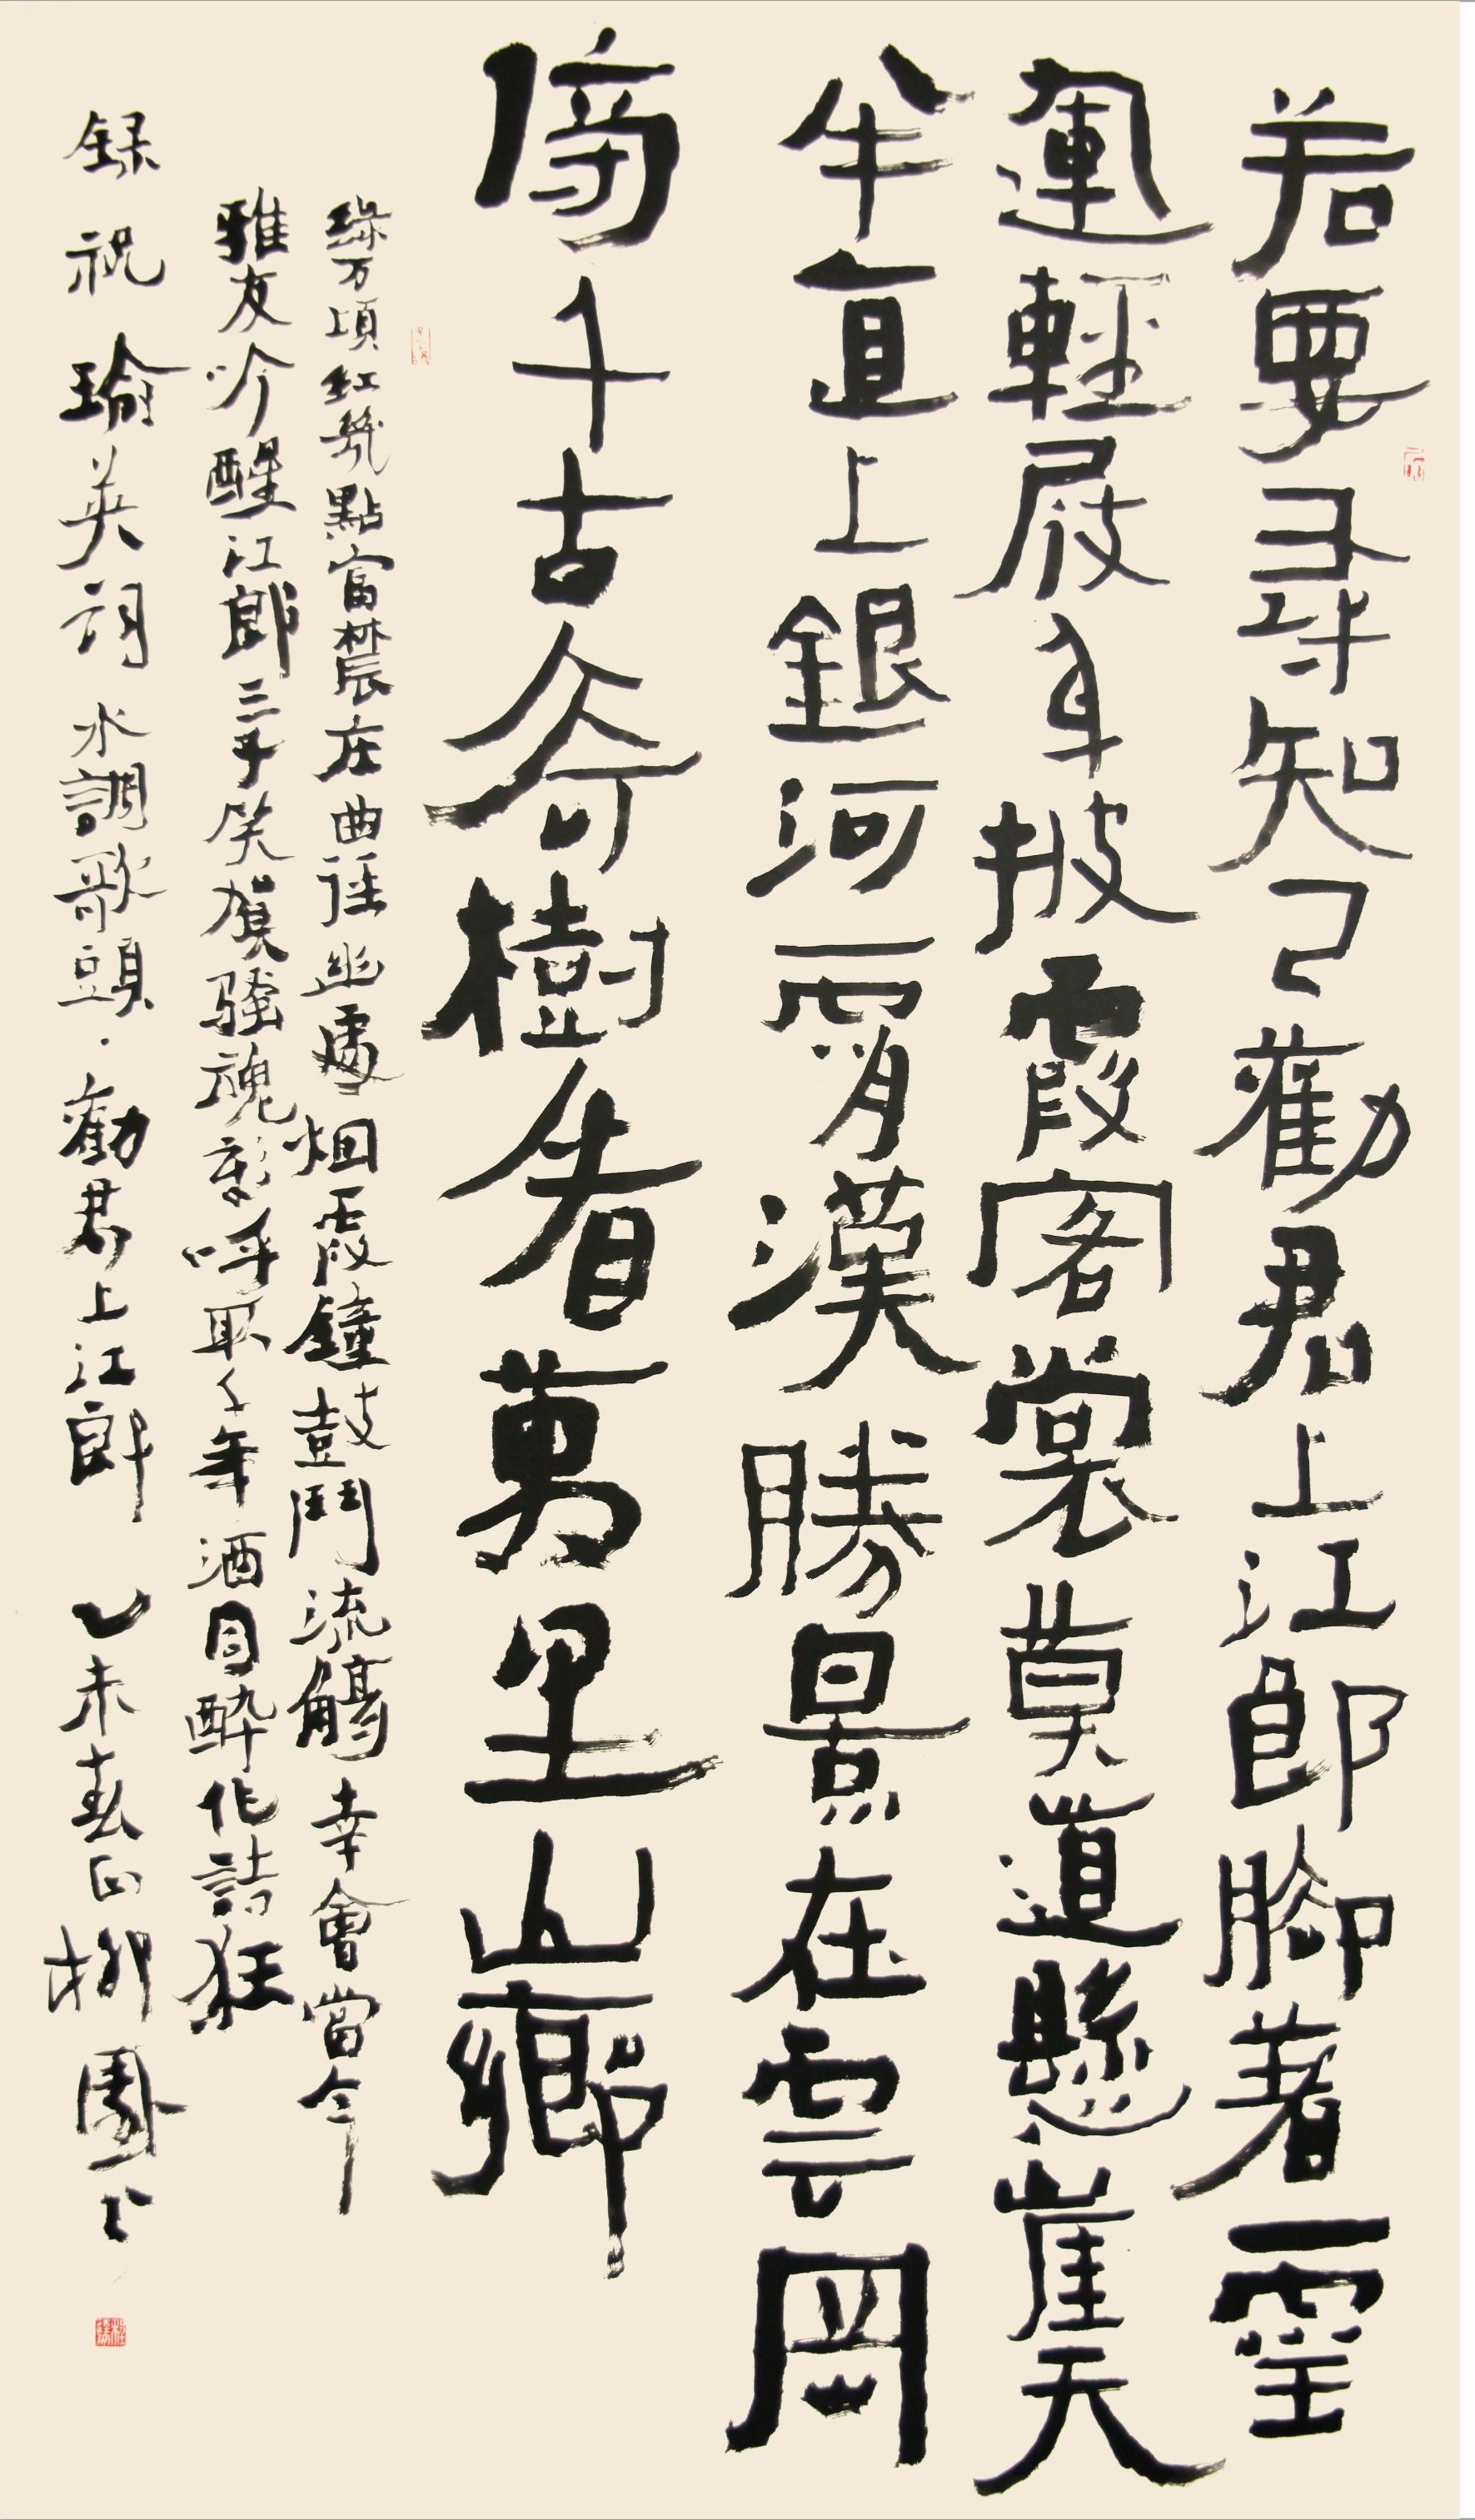 若要尋知己勸君上江郎腳著靈
運輕屐身披霞客裳莫道懸崖天
半直上銀河霄漢勝景在雲岡
倚千古奇樹看萬里山鄉
綠万頃紅幾點富農庄曲徑幽處烟霞鐘鼓鬥流觴幸會當今
雅友吟醒江郎三子笑賀騷魂彰呼取千年酒同醉化詩狂
錄祝瑜英詞水調歌頭·勸君上江郎 乙未春